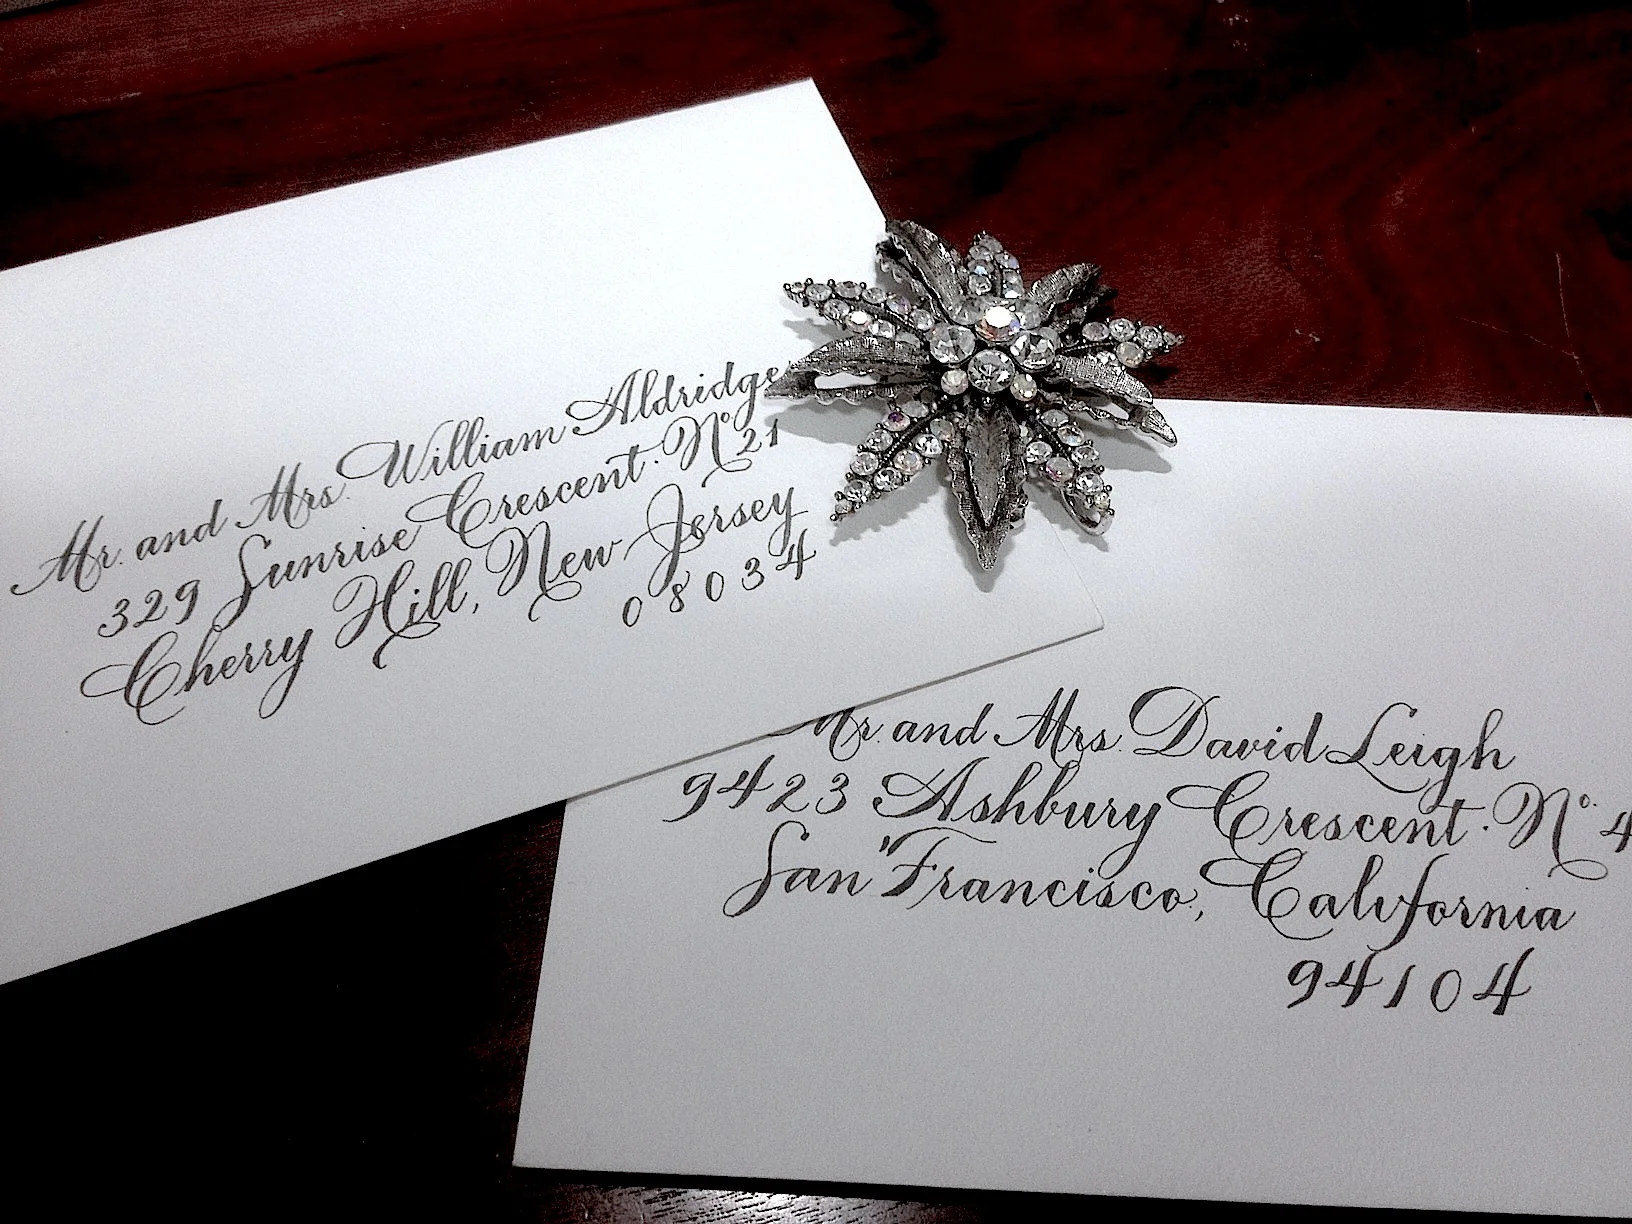 Mr. and Mrs. William Aldridge
329 Sunrise Crescent · Nº 21
Cherry Hill, New Jersey
08034
Mr. and Mrs. David Leigh
9423 Ashbury Crescent · Nº 4
San Francisco, California
94104